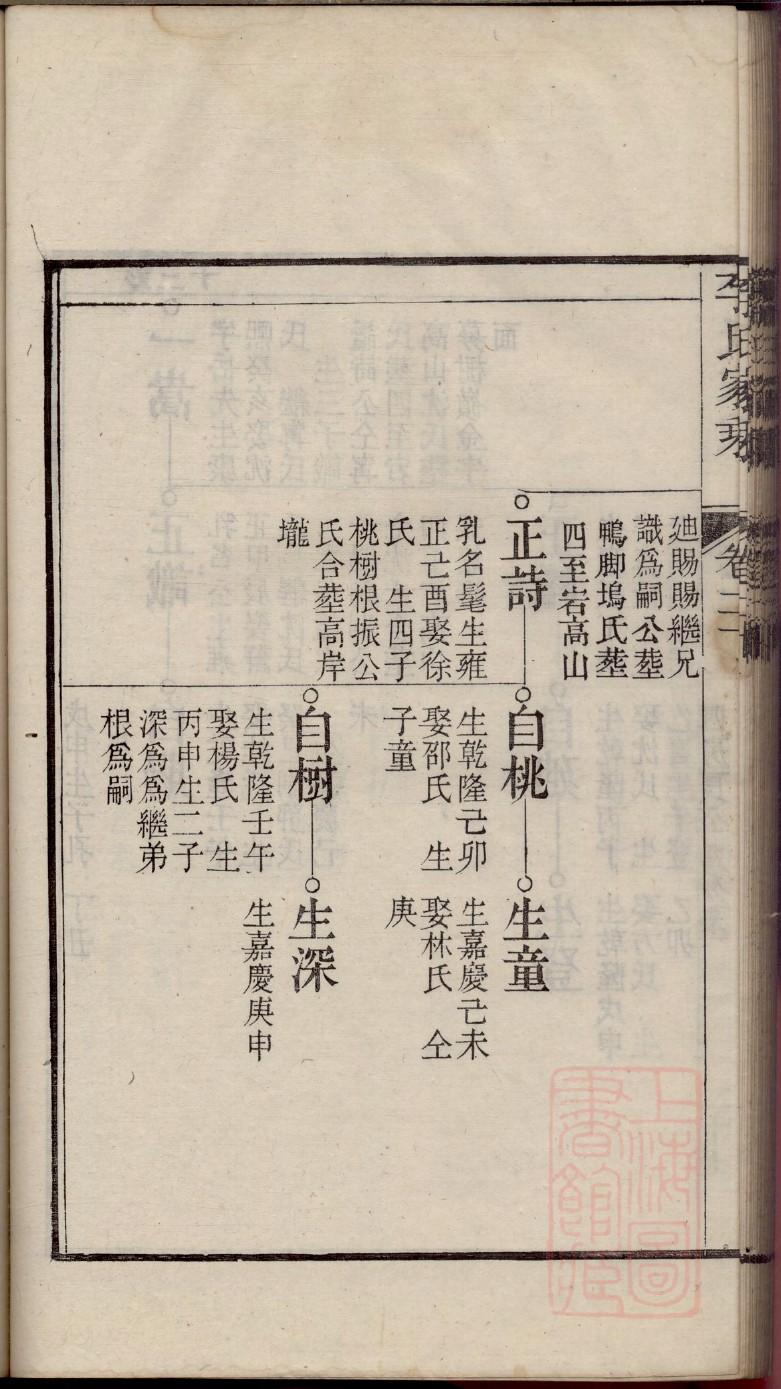 李氏家乘
卷二十
廸賜賜繼兄
識爲嗣公塟
鴨脚塢氏塟
四至岩高山
正詩
乳名髦生雍
正己酉娶徐
氏 生四子
桃樹根振公
氏合塟高岸
壠
自桃
生乾隆己卯
娶邵氏 生
子童
生童
生嘉慶己未
娶林氏 仝
庚
自樹
生乾隆壬午
娶楊氏 生
丙申生二子
深爲爲繼弟
根爲嗣
生深
生嘉慶庚申
上海圖
書館藏